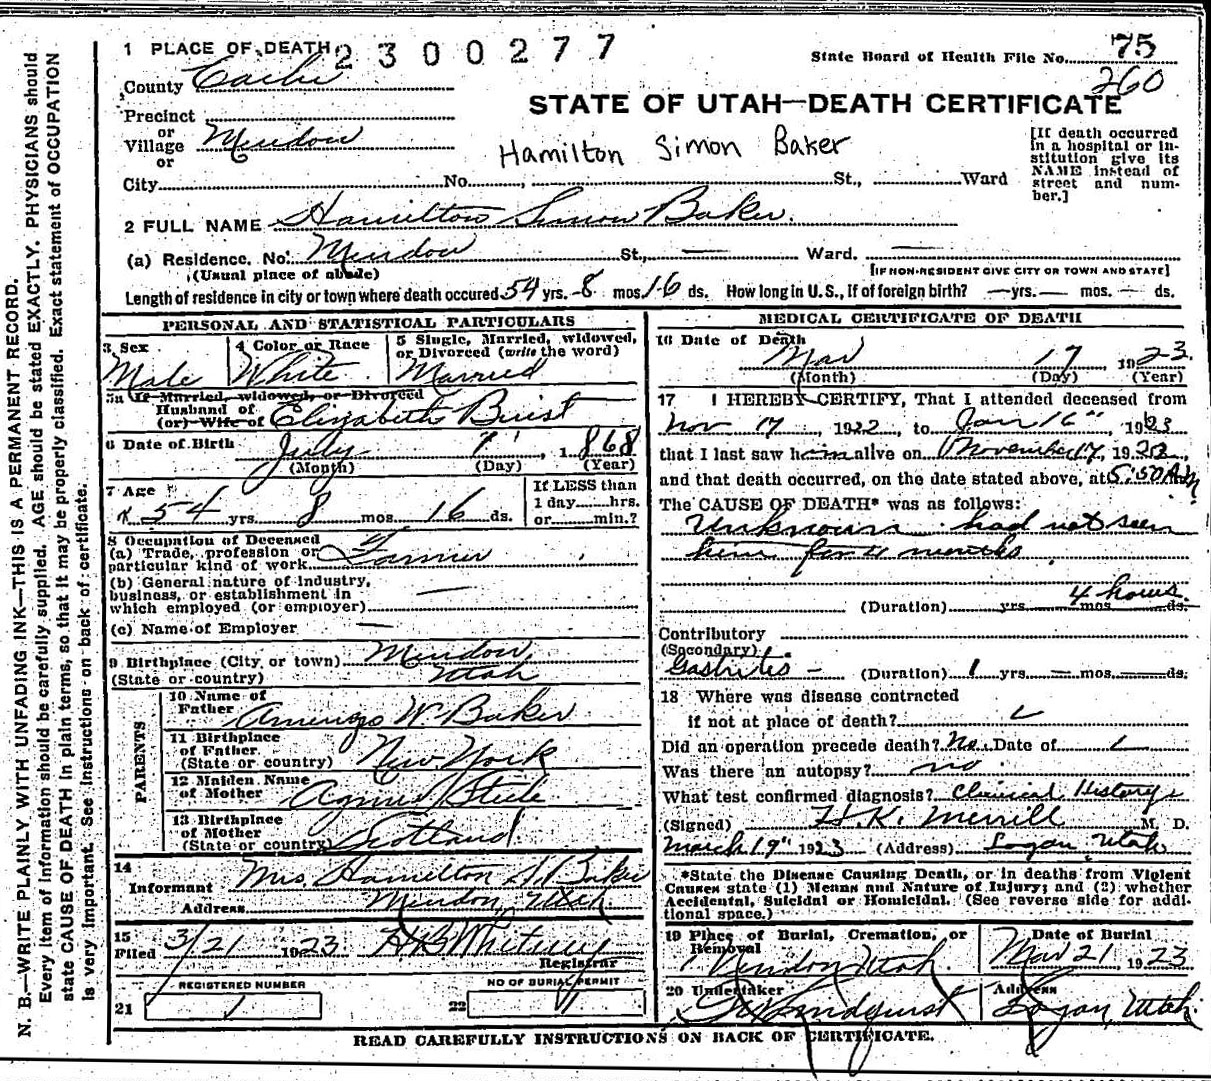 N. B.—WRITE PLAINLY WITH UNFADING INK—THIS IS A PERMANENT RECORD.
Every item of Information should be carefully supplied. AGE should be stated EXACTLY. PHYSICIANS should
state CAUSE OF DEATH in plain terms, so that it may be properly classified. Exact statement of OCCUPATION
is very important. See instructions on back of certificate.
1 PLACE OF DEATH 2300277
State Board of Health File No. 75
County Cache 260
STATE OF UTAH—DEATH CERTIFICATE
Precinct
or
Village Mendon
or
Hamilton Simon Baker
[If death occurred
in a hospital or in-
stitution give its
NAME instead of
street and num-
ber.]
City No. , St., Ward
2 FULL NAME Hamilton Simon Baker.
(a) Residence. No. Mendon St., — Ward. —
(Usual place of abode) [IF NON-RESIDENT GIVE CITY OR TOWN AND STATE]
Length of residence in city or town where death occured 54 yrs. 8 mos. 16 ds. How long in U.S., if of foreign birth? — yrs. — mos. — ds.
PERSONAL AND STATISTICAL PARTICULARS
3 Sex 4 Color or Race 5 Single, Married, widowed,
or Divorced (write the word)
Male White. Married
5a If Married, widowed, or Divorced
Husband of
(or) Wife of Elizabeth Buist
6 Date of Birth July 1, 1868
(Month) (Day) (Year)
7 Age If LESS than
1 day hrs.
54 yrs. 8 mos. 16 ds. or min.?
8 Occupation of Deceased
(a) Trade, profession or
particular kind of work Farmer
(b) General nature of Industry,
business, or establishment in
which employed (or employer) —
(c) Name of Employer —
9 Birthplace (City, or town) Mendon,
(State or country) Utah
PARENTS
10 Name of
Father Amenzo W. Baker
11 Birthplace
of Father
(State or country) New York
12 Maiden Name
of Mother Agnes Steele
13 Birthplace
of Mother
(State or country) Scotland.
14
Informant Mrs. Hamilton S. Baker
Address Mendon, Utah
15
Filed 3/21 1923 H B Whitney
Registrar
REGISTERED NUMBER NO OF BURIAL PERMIT
21 1 22
MEDICAL CERTIFICATE OF DEATH
16 Date of Death
Mar 17 1923.
(Month) (Day) (Year)
17 I HEREBY CERTIFY, That I attended deceased from
Nov 17, 1922, to Jan 16", 1923
that I last saw him alive on November 17, 1922,
and that death occurred, on the date stated above, at 5:50 A m
The CAUSE OF DEATH* was as follows:
Unknown had not seen
him for 4 months
4 hours.
(Duration) yrs mos ds.
Contributory
(Secondary)
Gastritis — (Duration) 1 yrs — mos — ds.
18 Where was disease contracted
if not at place of death?
Did an operation precede death? No. Date of
Was there an autopsy? no
What test confirmed diagnosis? Clinical History
(Signed) H.K. Merrill M. D.
March 19" 1923 (Address) Logan, Utah
*State the Disease Causing Death, or in deaths from Violent
Causes state (1) Means and Nature of Injury; and (2) whether
Accidental, Suicidal or Homicidal. (See reverse side for addi-
tional space.)
19 Place of Burial, Cremation, or Date of Burial
Removal
Mendon, Utah. Mar 21 1923
20 Undertaker Address
Lindquist Logan, Utah.
READ CAREFULLY INSTRUCTIONS ON BACK OF CERTIFICATE.